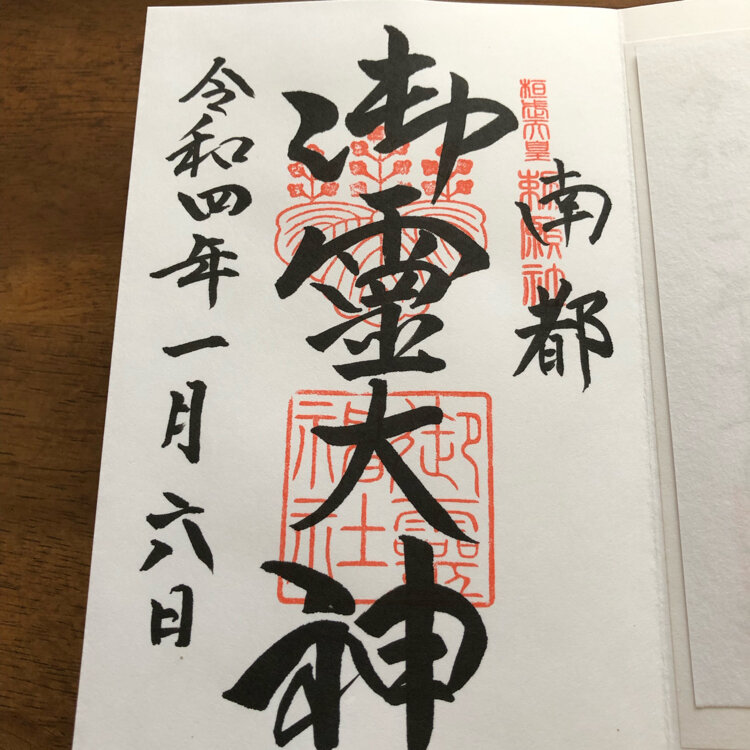 南都
桓武天皇
勅願神
御霊大神
御霊
神社
令和四年一月六日